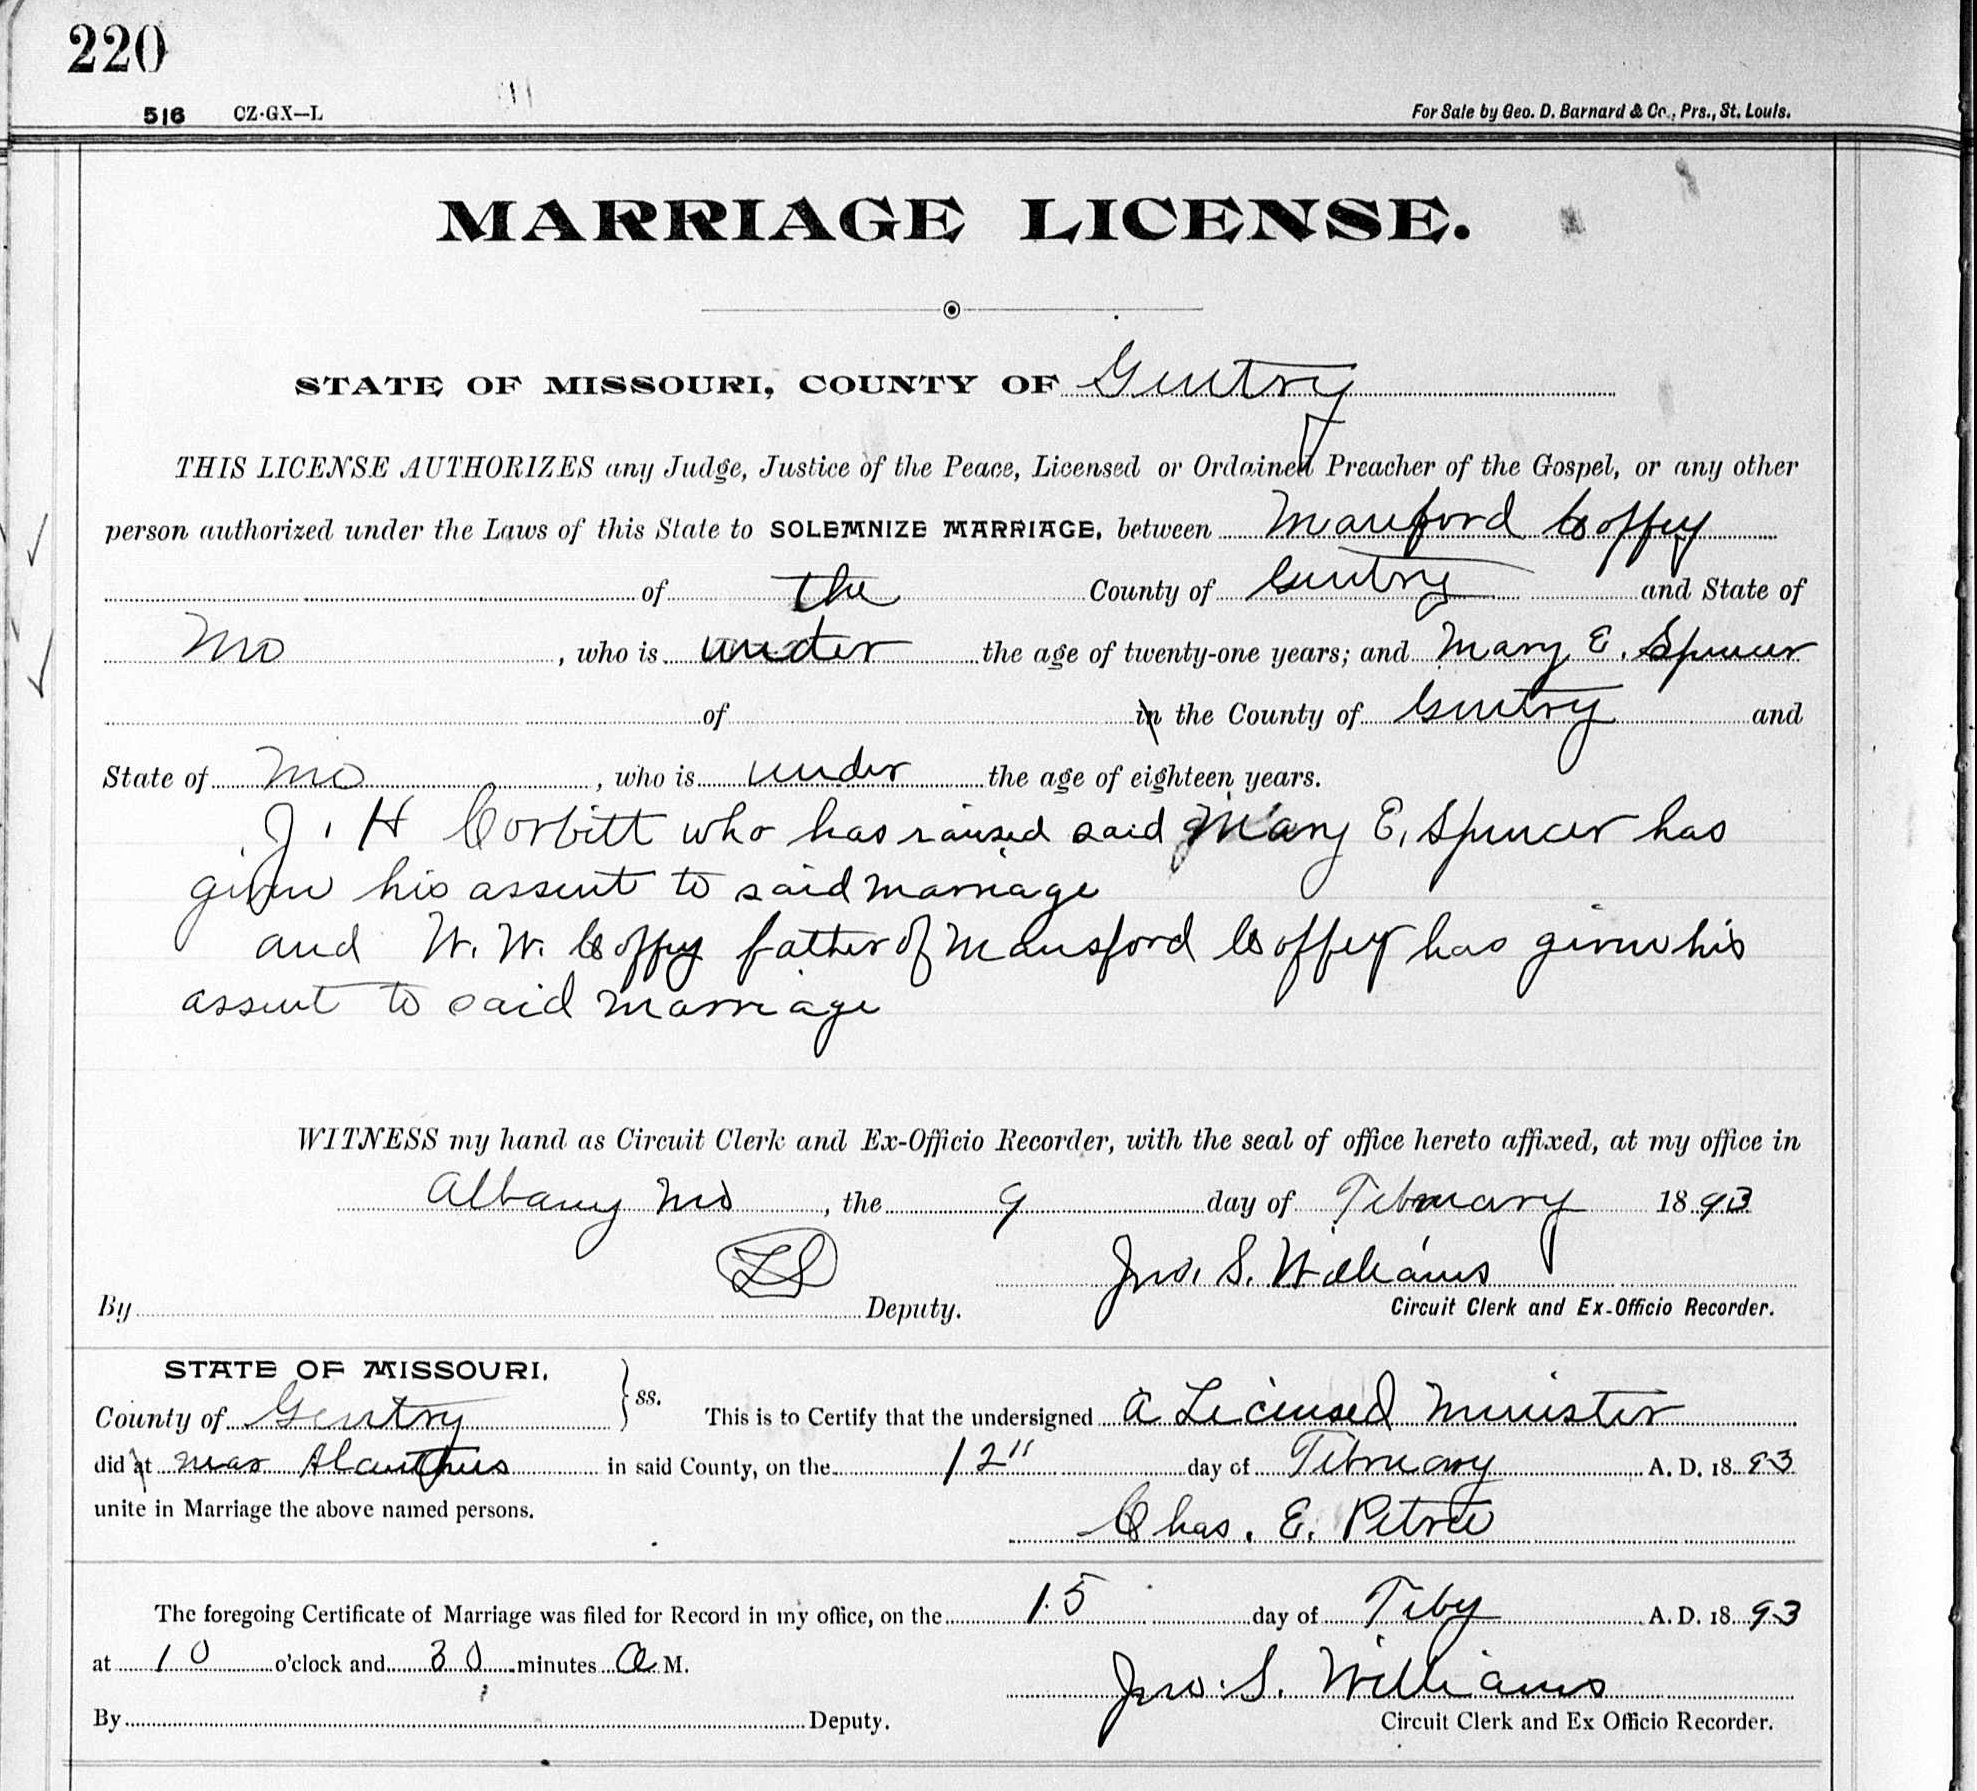 220
516 CZ·GX—L For Sale by Geo. D. Barnard & Co., Prs., St. Louis.
MARRIAGE LICENSE.
STATE OF MISSOURI, COUNTY OF Gentry
THIS LICENSE AUTHORIZES any Judge, Justice of the Peace, Licensed or Ordained Preacher of the Gospel, or any other
person authorized under the Laws of this State to SOLEMNIZE MARRIAGE, between Mansford Coffey
of the County of Gentry and State of
Mo, who is under the age of twenty-one years; and Mary E. Spencer
of in the County of Gentry and
State of Mo, who is under the age of eighteen years.
J. H Corbitt who has raised said Mary E. Spencer has
given his assent to said marriage
and W. W. Coffey father of Mansford Coffey has given his
assent to said marriage
WITNESS my hand as Circuit Clerk and Ex-Officio Recorder, with the seal of office hereto affixed, at my office in
Albany Mo, the 9 day of February 1893
LS Jno. S. Williams
By Deputy. Circuit Clerk and Ex-Officio Recorder.
STATE OF MISSOURI,
County of Gentry } ss. This is to Certify that the undersigned a Licensed Minister
did at near Alanthus in said County, on the 12" day of February A. D. 1893
unite in Marriage the above named persons.
Chas. E. Petree
The foregoing Certificate of Marriage was filed for Record in my office, on the 15 day of Feby A. D. 1893
at 10 o'clock and 30 minutes A. M.
Jno. S. Williams
By Deputy. Circuit Clerk and Ex Officio Recorder.